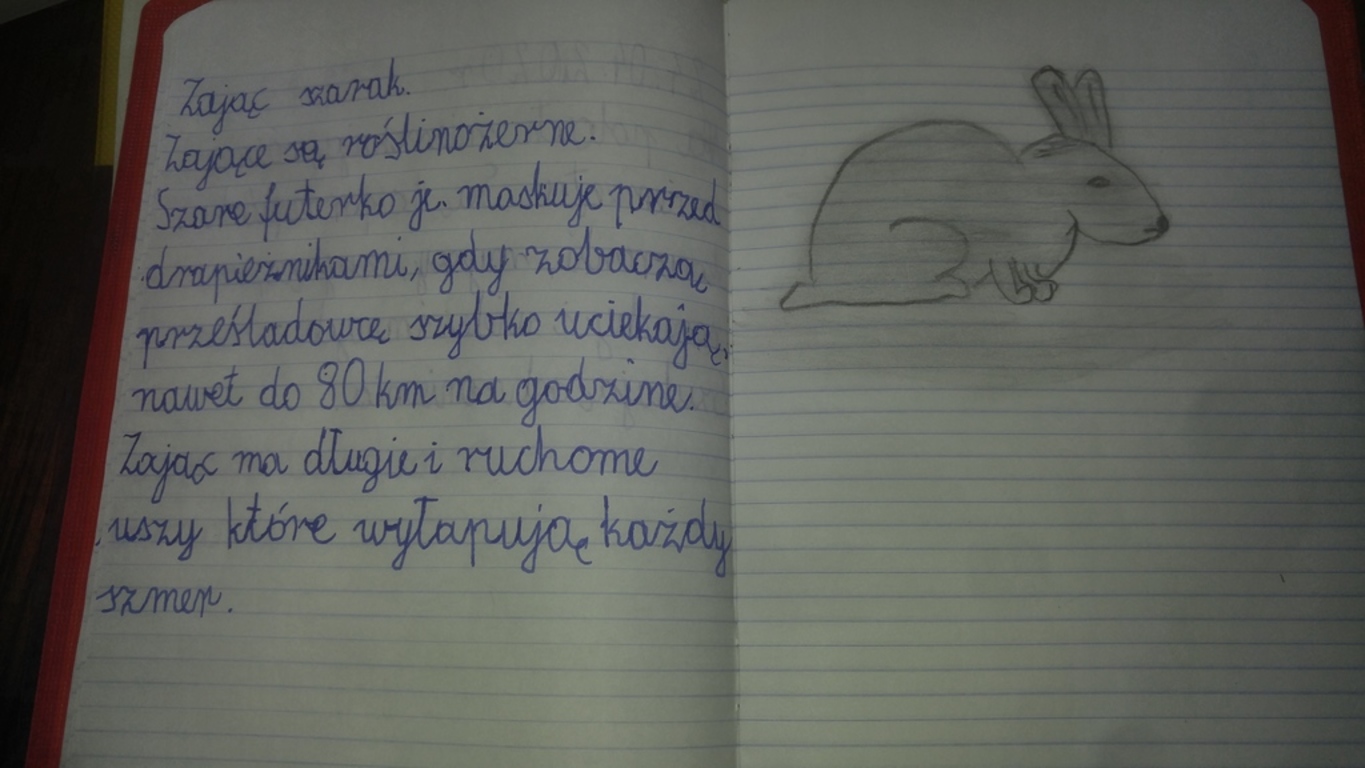 Zając szarak.
Zające są roślinożerne.
Szare futerko je. maskuje przed
drapieżnikami, gdy zobaczą
prześladowcę szybko uciekają,
nawet do 80 km na godzinę.
Zając ma długie i ruchome
uszy które wyłapują każdy
szmer.